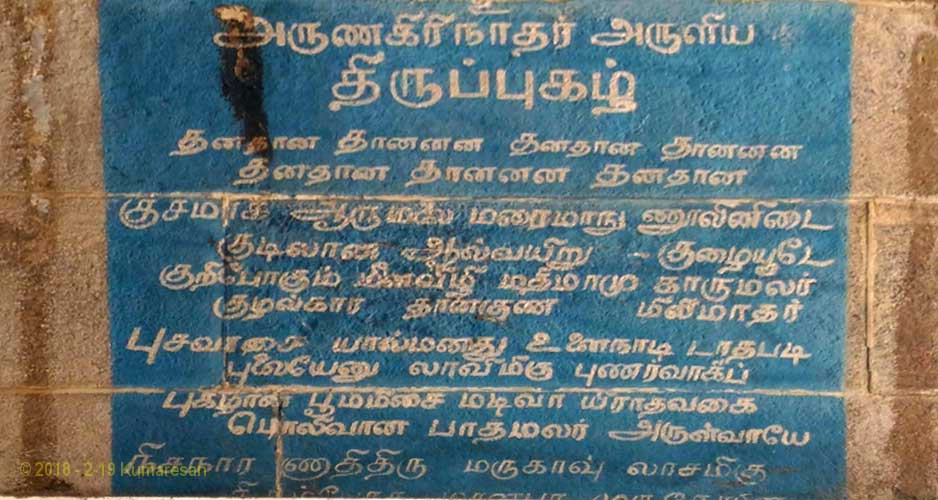 அருணகிரிநாதர் அருளிய
திருப்புகழ்
தனதான தானனன தனதான தானனன
தனதான தானனன தனதான
குசமாகி ஆருமலை மரைமாநு ணூலினிடை
குடிலான ஆல்வயிறு - குழையூடே
குறிபோகும் மீனவிழி மதிமாமு காருமலர்
குழல்கார தானகுண மிலிமாதர்
புசவாசை யால்மனது உனைநாடி டாதபடி
புலையேனு லாவிமிகு புணர்வாகிப்
புகழான பூமிமிசை மடிவாய் பிறாதவகை
பொலிவான பாதமலர் அருள்வாயே
நிசநார ணதிதிரு மருகாவு லாசமிகு
© 2018 - 2-19 kumaresan